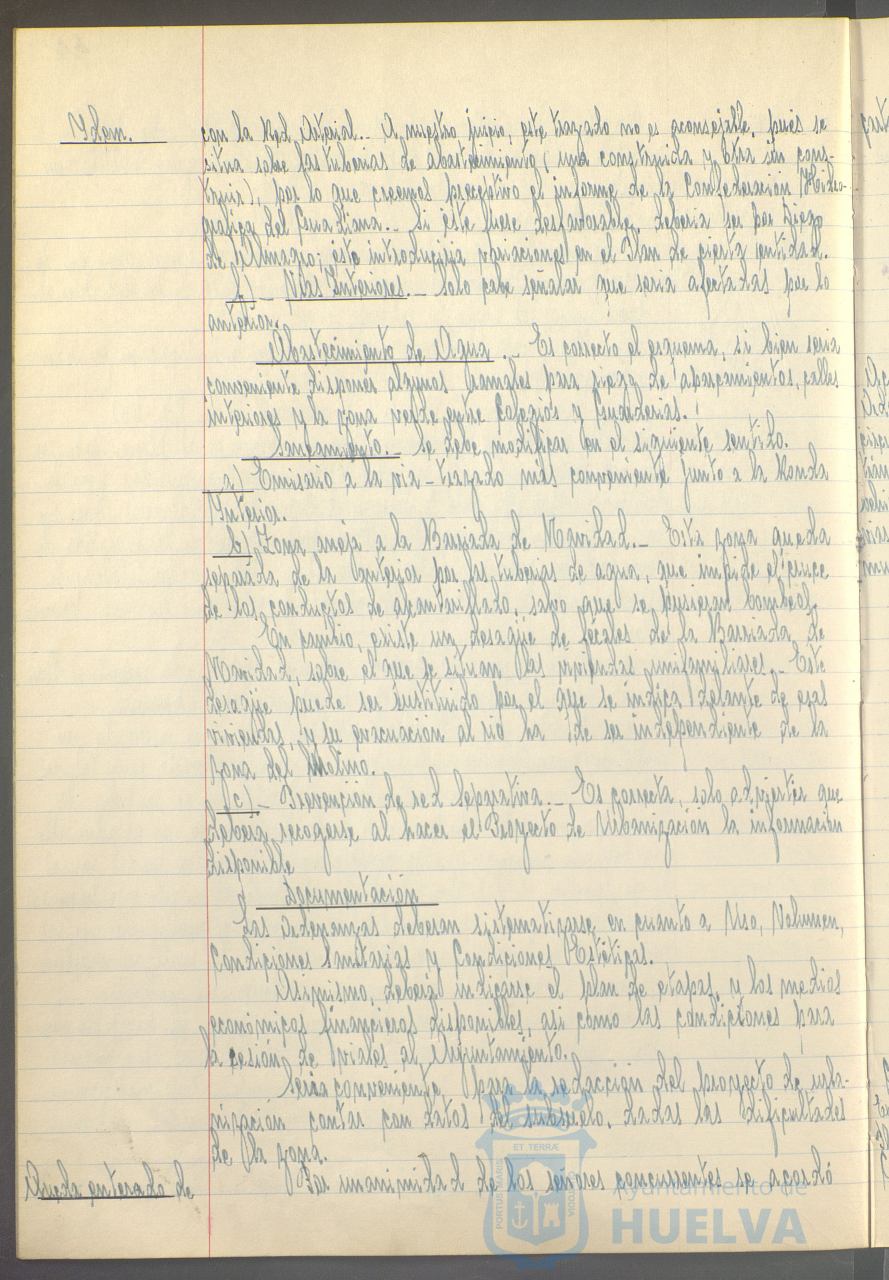 Idem.
con la Red Arterial.- A nuestro juicio, este trazado no es aconsejable, pues se
situa sobre las tuberias de abastecimiento, (una construida y otra sin cons-
truir), por lo que creemos preceptivo el informe de la Confederación Hidro-
gráfica del Guadiana.- Si éste fuese desfavorable, deberia ser por Diego
de Almagro; éste introduciria variaciones en el Plan de cierta entidad.
f)- Vias Interiores.- Solo cabe señalar que seria afectadas por lo
anterior.
Abastecimiento de Agua.- Es correcto el esquema, si bien seria
conveniente disponer algunos ramales para riego de aparcamientos, calles
interiores y la zona verde entre Colegios y Guarderias.
Saneamiento.- Se debe modificar en el siguiente sentido.
a) Emisario a la via - trazado más conveniente junto a la Ronda
Interior.
b) Zona aneja a la Barriada de Navidad.- Esta zona queda
separada de la anterior por las tuberias de agua, que impide el cruce
de los conductos de alcantarillado, salvo que se pusieran bombeos.
En cambio, existe un desagüe de fecales de la Barriada de
Navidad, sobre el que se situan las viviendas unifamiliares.- Este
desagüe puede ser sustituido por el que se indica delante de esas
viviendas, y su evacuación al rio ha de ser independiente de la
zona del Molino.
c)- Prevención de red Separativa.- Es correcta, solo advertir que
deberá recogerse al hacer el Proyecto de Urbanización la información
disponible
Documentación
Las Ordenanzas deberan sistematizarse en cuanto a Uso, Volumen,
Condiciones Sanitarias y Condiciones Estéticas.
Asimismo, deberá indicarse el plan de etapas, y los medios
económicos financieros disponibles, asi como las condiciones para
la cesión de viales al Ayuntamiento.
Seria conveniente, para la redacción del proyecto de urba-
nización contar con datos del subsuelo, dadas las dificultades
de la zona.
Por unanimidad de los señores concurrentes se acordó
Queda enterado de
ET TERRÆ
PORTUS MARIS
CUSTODIA
Ayuntamiento de
HUELVA